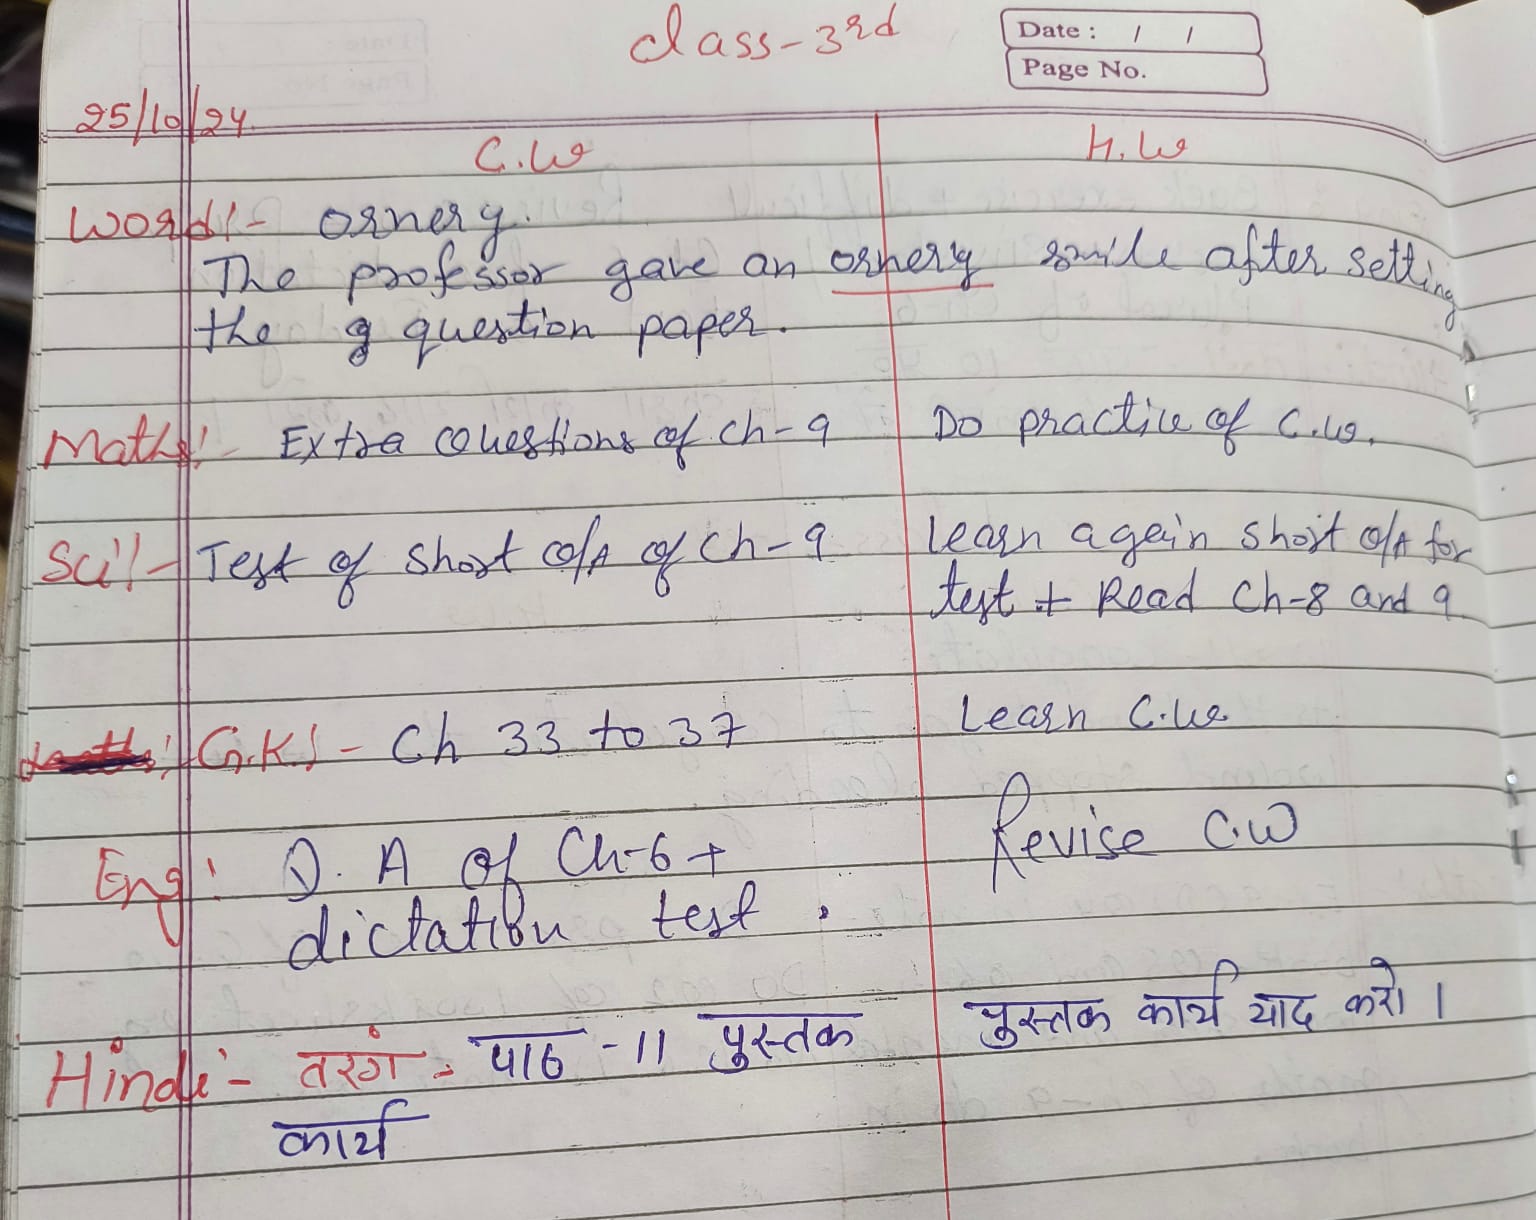 class-3rd
Date : / /
Page No.
25/10/24
C.W
H.W
Word!- ornery.
The professor gave an ornery smile after setting
the q question paper.
Maths!- Extra Questions of ch-9
Do practice of C.W.
Sci!- Test of short Q/A of ch-9
Learn again short Q/A for
test + Read Ch-8 and 9
G.K!- Ch 33 to 37
Learn C.W.
Eng: Q. A of Ch-6 +
Revise C.W
dictation test .
Hindi:- तरंग - पाठ -11 पुस्तक
पुस्तक कार्य याद करो ।
कार्य